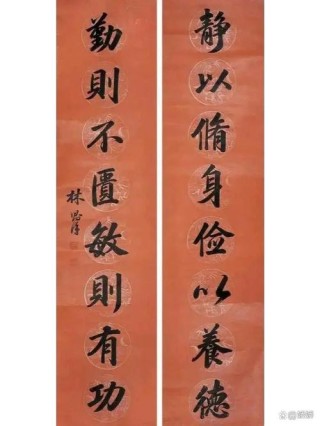 静以脩身俭以養德
勤則不匱敏則有功
林則徐